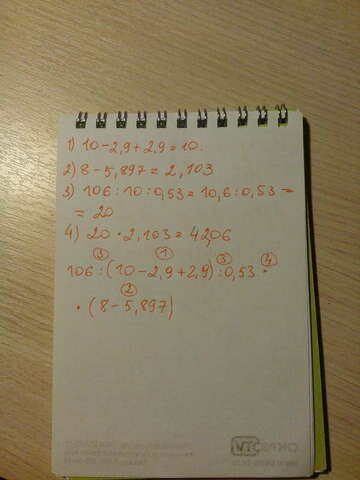 1) 10-2,9+2,9=10.
2) 8-5,897=2,103
3) 106:10:0,53=10,6:0,53=
=20
4) 20·2,103=42,06
③ ① ③ ④
106:(10-2,9+2,9):0,53·
②
·(8-5,897)